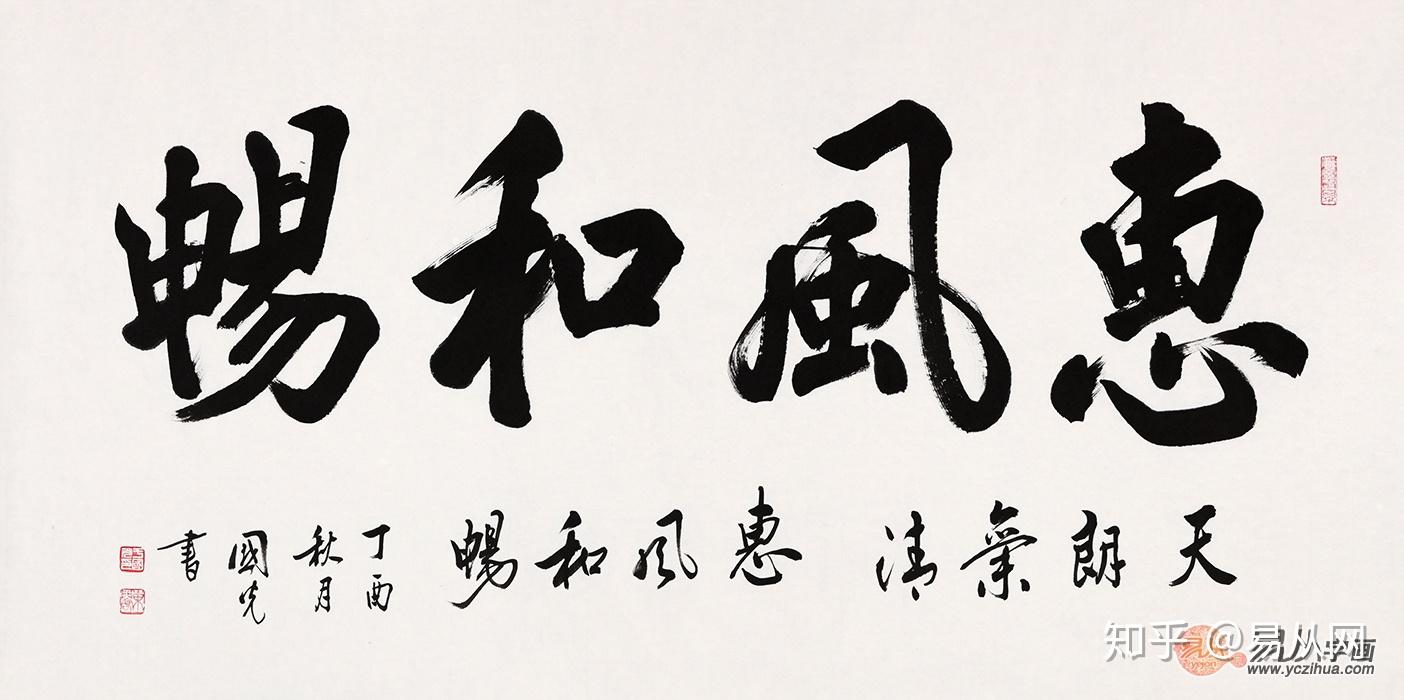 惠風和暢
天朗氣清 惠風和暢
丁酉
秋月
國光
書
知乎 @易从网
易从字画
www.yczihua.com